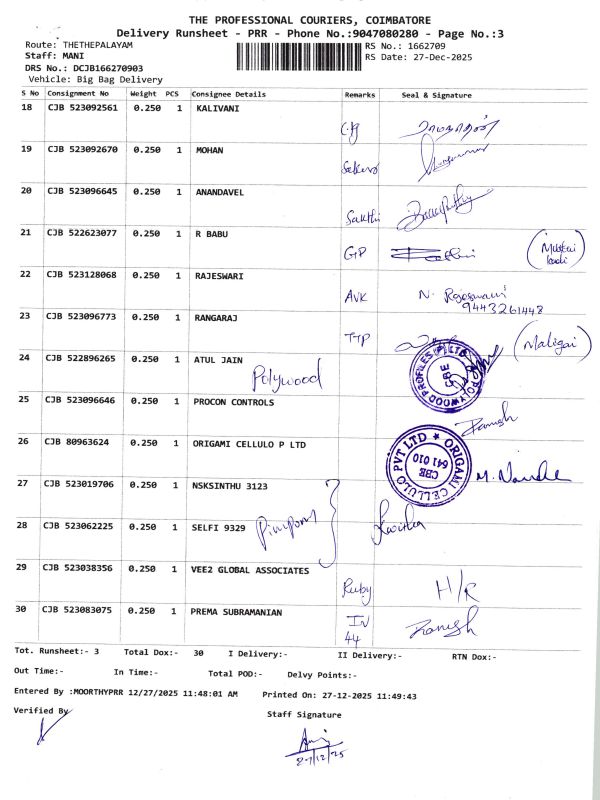 THE PROFESSIONAL COURIERS, COIMBATORE
Delivery Runsheet - PRR - Phone No.:9047080280 - Page No.:3
Route: THETHEPALAYAM
RS No.: 1662709
Staff: MANI
RS Date: 27-Dec-2025
DRS No.: DCJB166270903
Vehicle: Big Bag Delivery
S No Consignment No Weight PCS Consignee Details Remarks Seal & Signature
18 CJB 523092561 0.250 1 KALIVANI
19 CJB 523092670 0.250 1 MOHAN
20 CJB 523096645 0.250 1 ANANDAVEL
Sakthi
21 CJB 522623077 0.250 1 R BABU
GP
22 CJB 523128068 0.250 1 RAJESWARI
AVK N. Rajeswari
9443261448
23 CJB 523096773 0.250 1 RANGARAJ
TTP (Maligai)
24 CJB 522896265 0.250 1 ATUL JAIN
Polywood
POLYWOOD PROFILES (P) LTD
CBE
25 CJB 523096646 0.250 1 PROCON CONTROLS
26 CJB 80963624 0.250 1 ORIGAMI CELLULO P LTD
ORIGAMI CELLULO PVT LTD
CBE
641 010
27 CJB 523019706 0.250 1 NSKSINTHU 3123
28 CJB 523062225 0.250 1 SELFI 9329
Kavitha
29 CJB 523038356 0.250 1 VEE2 GLOBAL ASSOCIATES
Ruby H/R
30 CJB 523083075 0.250 1 PREMA SUBRAMANIAN
IN
44
Tot. Runsheet:- 3 Total Dox:- 30 I Delivery:- II Delivery:- RTN Dox:-
Out Time:- In Time:- Total POD:- Delvy Points:-
Entered By :MOORTHYPRR 12/27/2025 11:48:01 AM Printed On: 27-12-2025 11:49:43
Verified By
Staff Signature
27/12/25